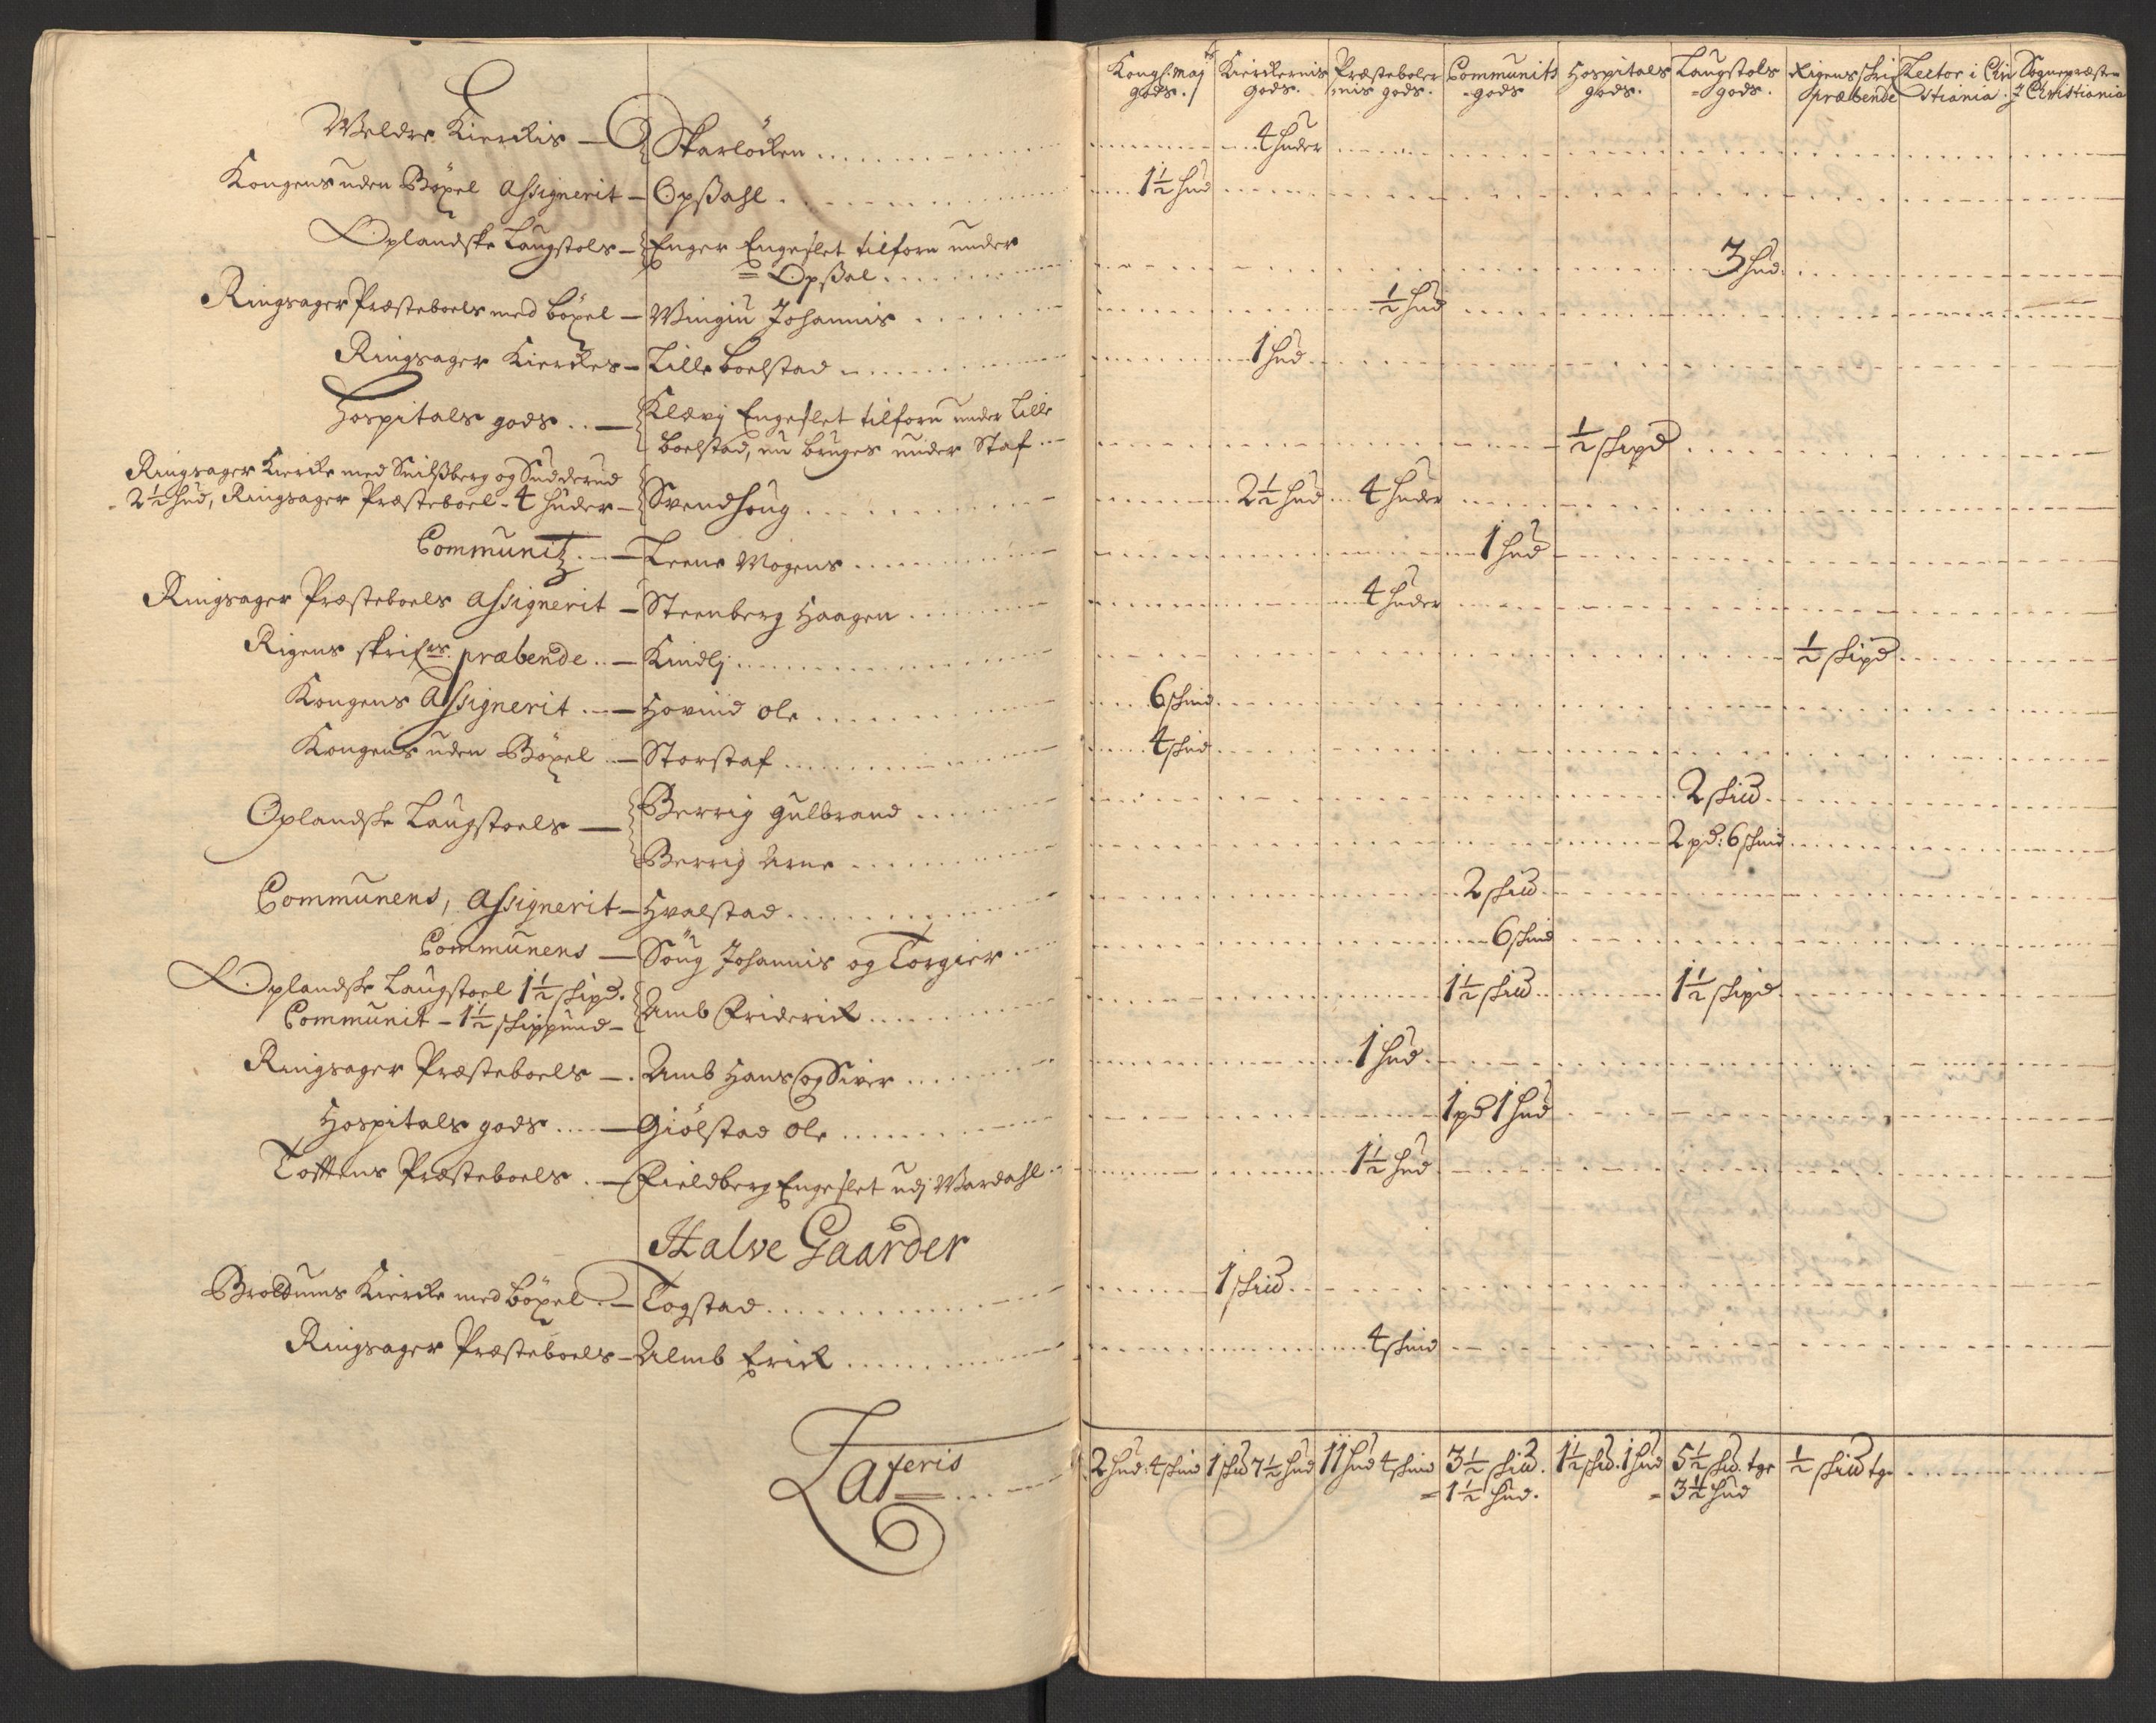 Weldre Kierckis — Skarlöcken
Kongens uden Böxel Assignerit — Opßahl
Oplandske Laugstols — Enger Engeslet tilforn under
= Opßal
Ringsager Præsteboels med böxel — Wingiu Johannis
Ringsager Kierckes — Lille boelstad
Hospitals gods — Klævj Engeslet tilforn under Lille
boelstad, nu bruges under Staf
Ringsager Kiercke med Snilßberg og Sudderud
2½ hud, Ringsager Præsteboel - 4 huder — Svendhoug
Communitz — Teene Mogens
Ringsager Præsteboels Assignerit — Steenberg Haagen
Rigens skrifrs præbende — Kindlj
Kongens Assignerit — Hovind Ole
Kongens uden Böxel — Storstaf
Oplandske Laugstoels — Berrig Gulbrand
Berrig Arne
Communens, Assignerit — Hvalstad
Communens — Söug Johannis og Torgier
Oplandske Laugstoel 1½ skipd.
Communit - 1½ skippund — Amb Friderick
Ringsager Præsteboels — Amb Hans og Siver
Hospitals gods — Giölstad Ole
Tottens Præsteboels — Fieldberg Engeslet udj Wardahl
Halve Gaarder
Brøttums Kiercke med böxel — Togstad
Ringsager Præsteboels — Almb Erick
Lateris
Kongl. Mayts gods. Kierckernis gods. Præsteboler nis gods. Communits gods Hospitals gods. Laugstols gods. Rigens skrif præbende Lector i Chri stiania. Sognepræsten J Christiania
4 huder
1½ hud
3 hud.
½ hud
1 hud
½ skipd
2½ hud 4 huder
1 hud
4 huder
½ skipd
6 skind
4 skind
2 skud
2 pd: 6 skind
2 skud
6 skind
1½ skud 1½ skipd
1 hud
1 pd 1 hud
1½ hud
1 skud
4 skind
2 hud: 4 skind 1 skud 7½ hud 11 hud 4 skind 3½ skud. 1½ skud. 1 hud 5½ skud. tge ½ skud tge
= 1½ hud. = 3½ hud